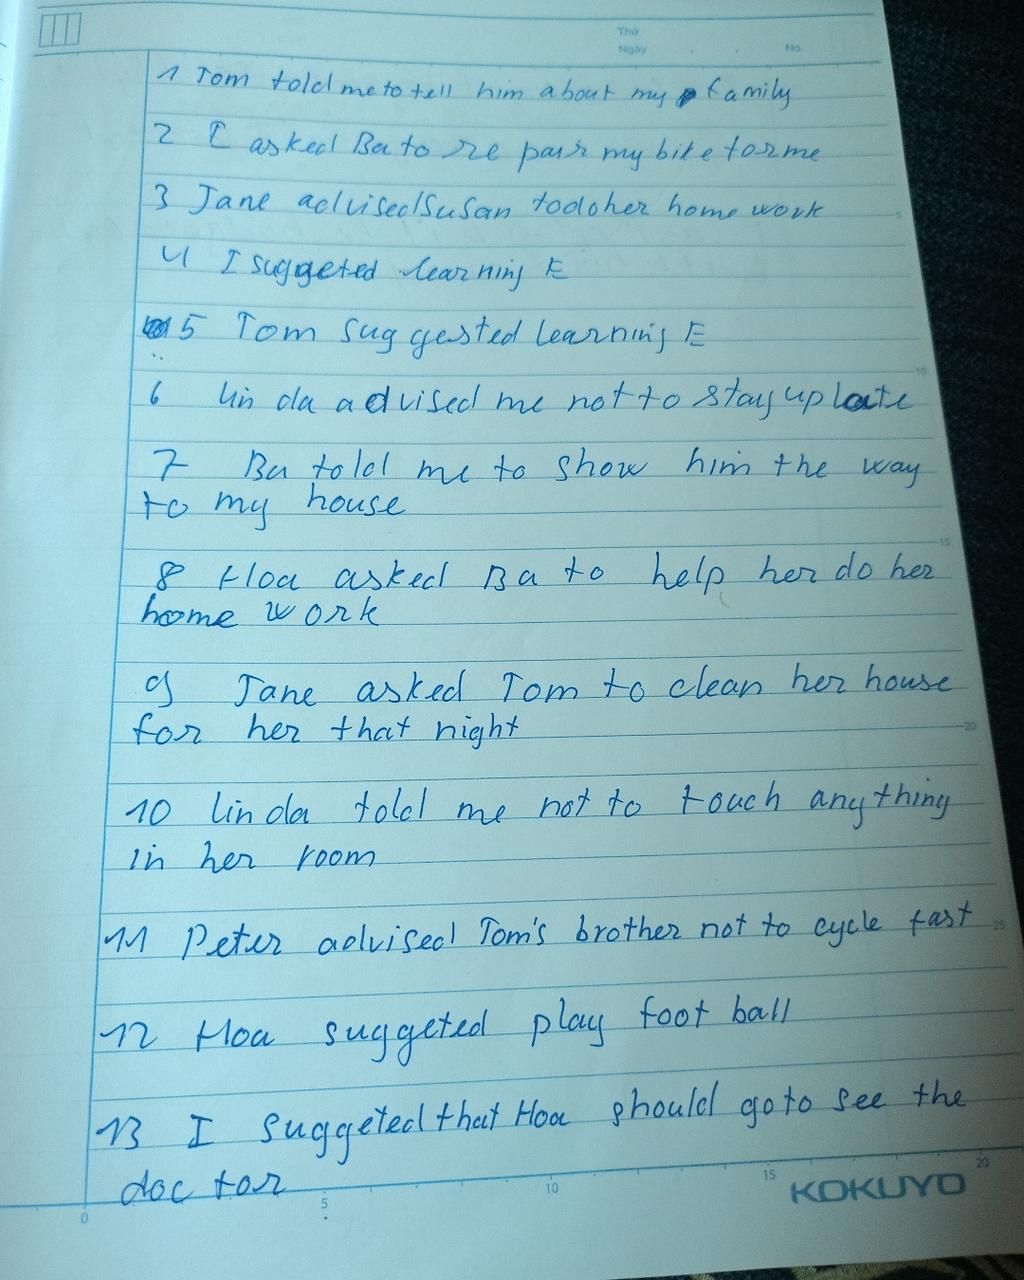 Thứ
Ngày . . No.
1 Tom told me to tell him about my family
2 I asked Ba to repair my bike for me
3 Jane advised Susan to do her home work
5
4 I suggeted learning E
5 Tom suggested learning E
10
6 Linda advised me not to stay up late
7 Ba told me to show him the way
to my house
15
8 Hoa asked Ba to help her do her
home work
9 Jane asked Tom to clean her house
for her that night
20
10 linda told me not to touch anything
in her room
11 Peter advised Tom's brother not to cycle fast
25
12 Hoa suggeted play foot ball
13 I suggeted that Hoa should go to see the
doctor
0 5 10 15 20
KOKUYO